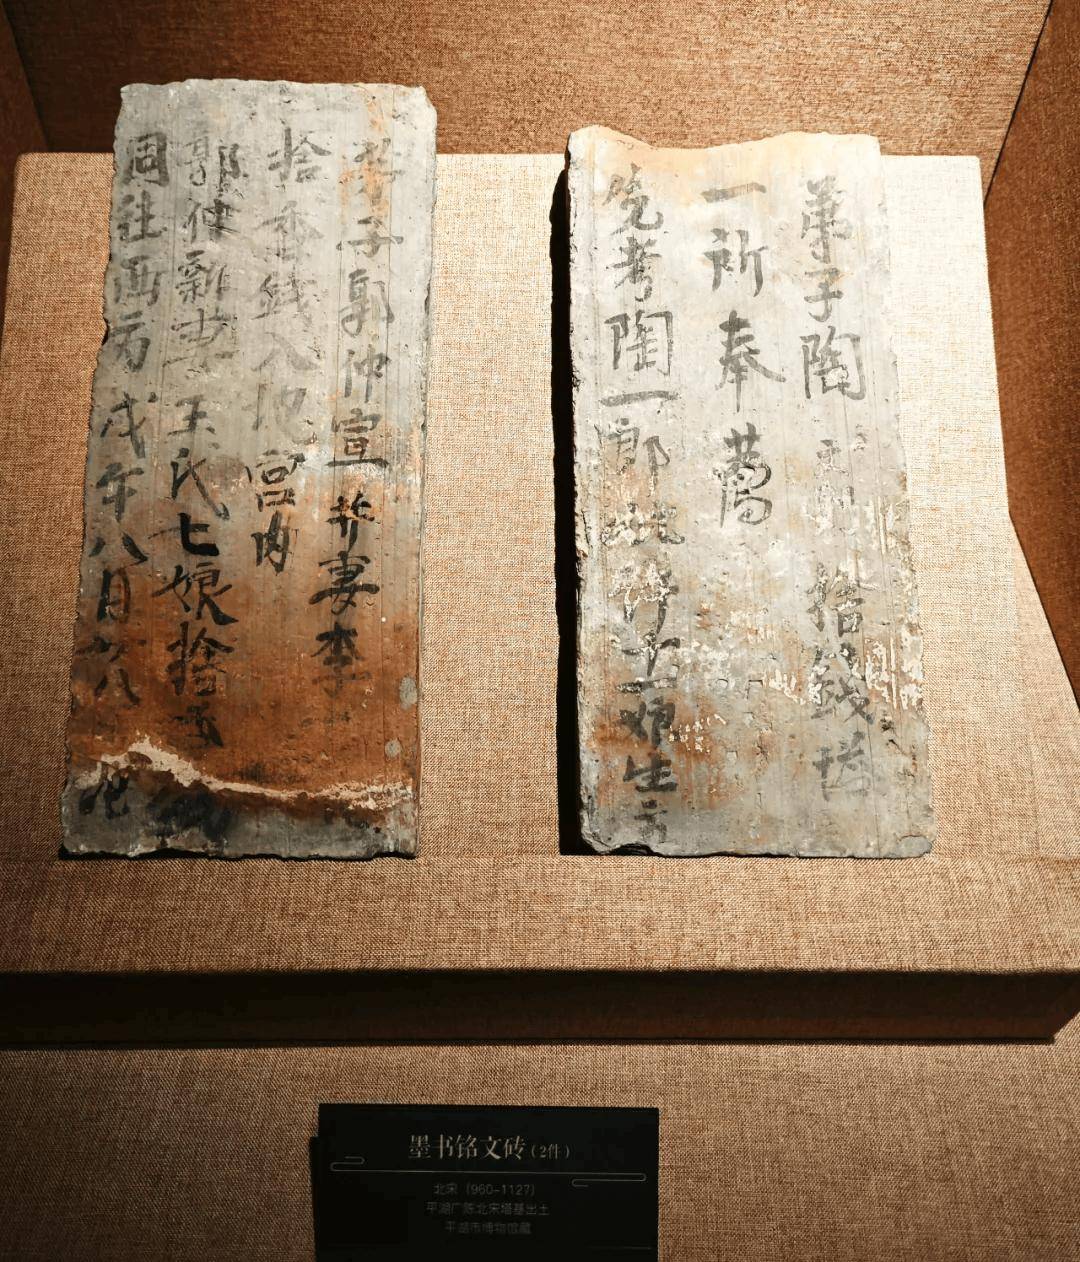 孝子郭仲宣并妻李
捨香錢入地宮内
郭仲新妻王氏七娘捨
同社西方戊年八日
弟子陶捨錢塔
一祈奉薦
先考陶一郎妣十一娘生
墨书铭文砖（2件）
北宋（960-1127）
平湖广陈北宋塔基出土
平湖市博物馆藏